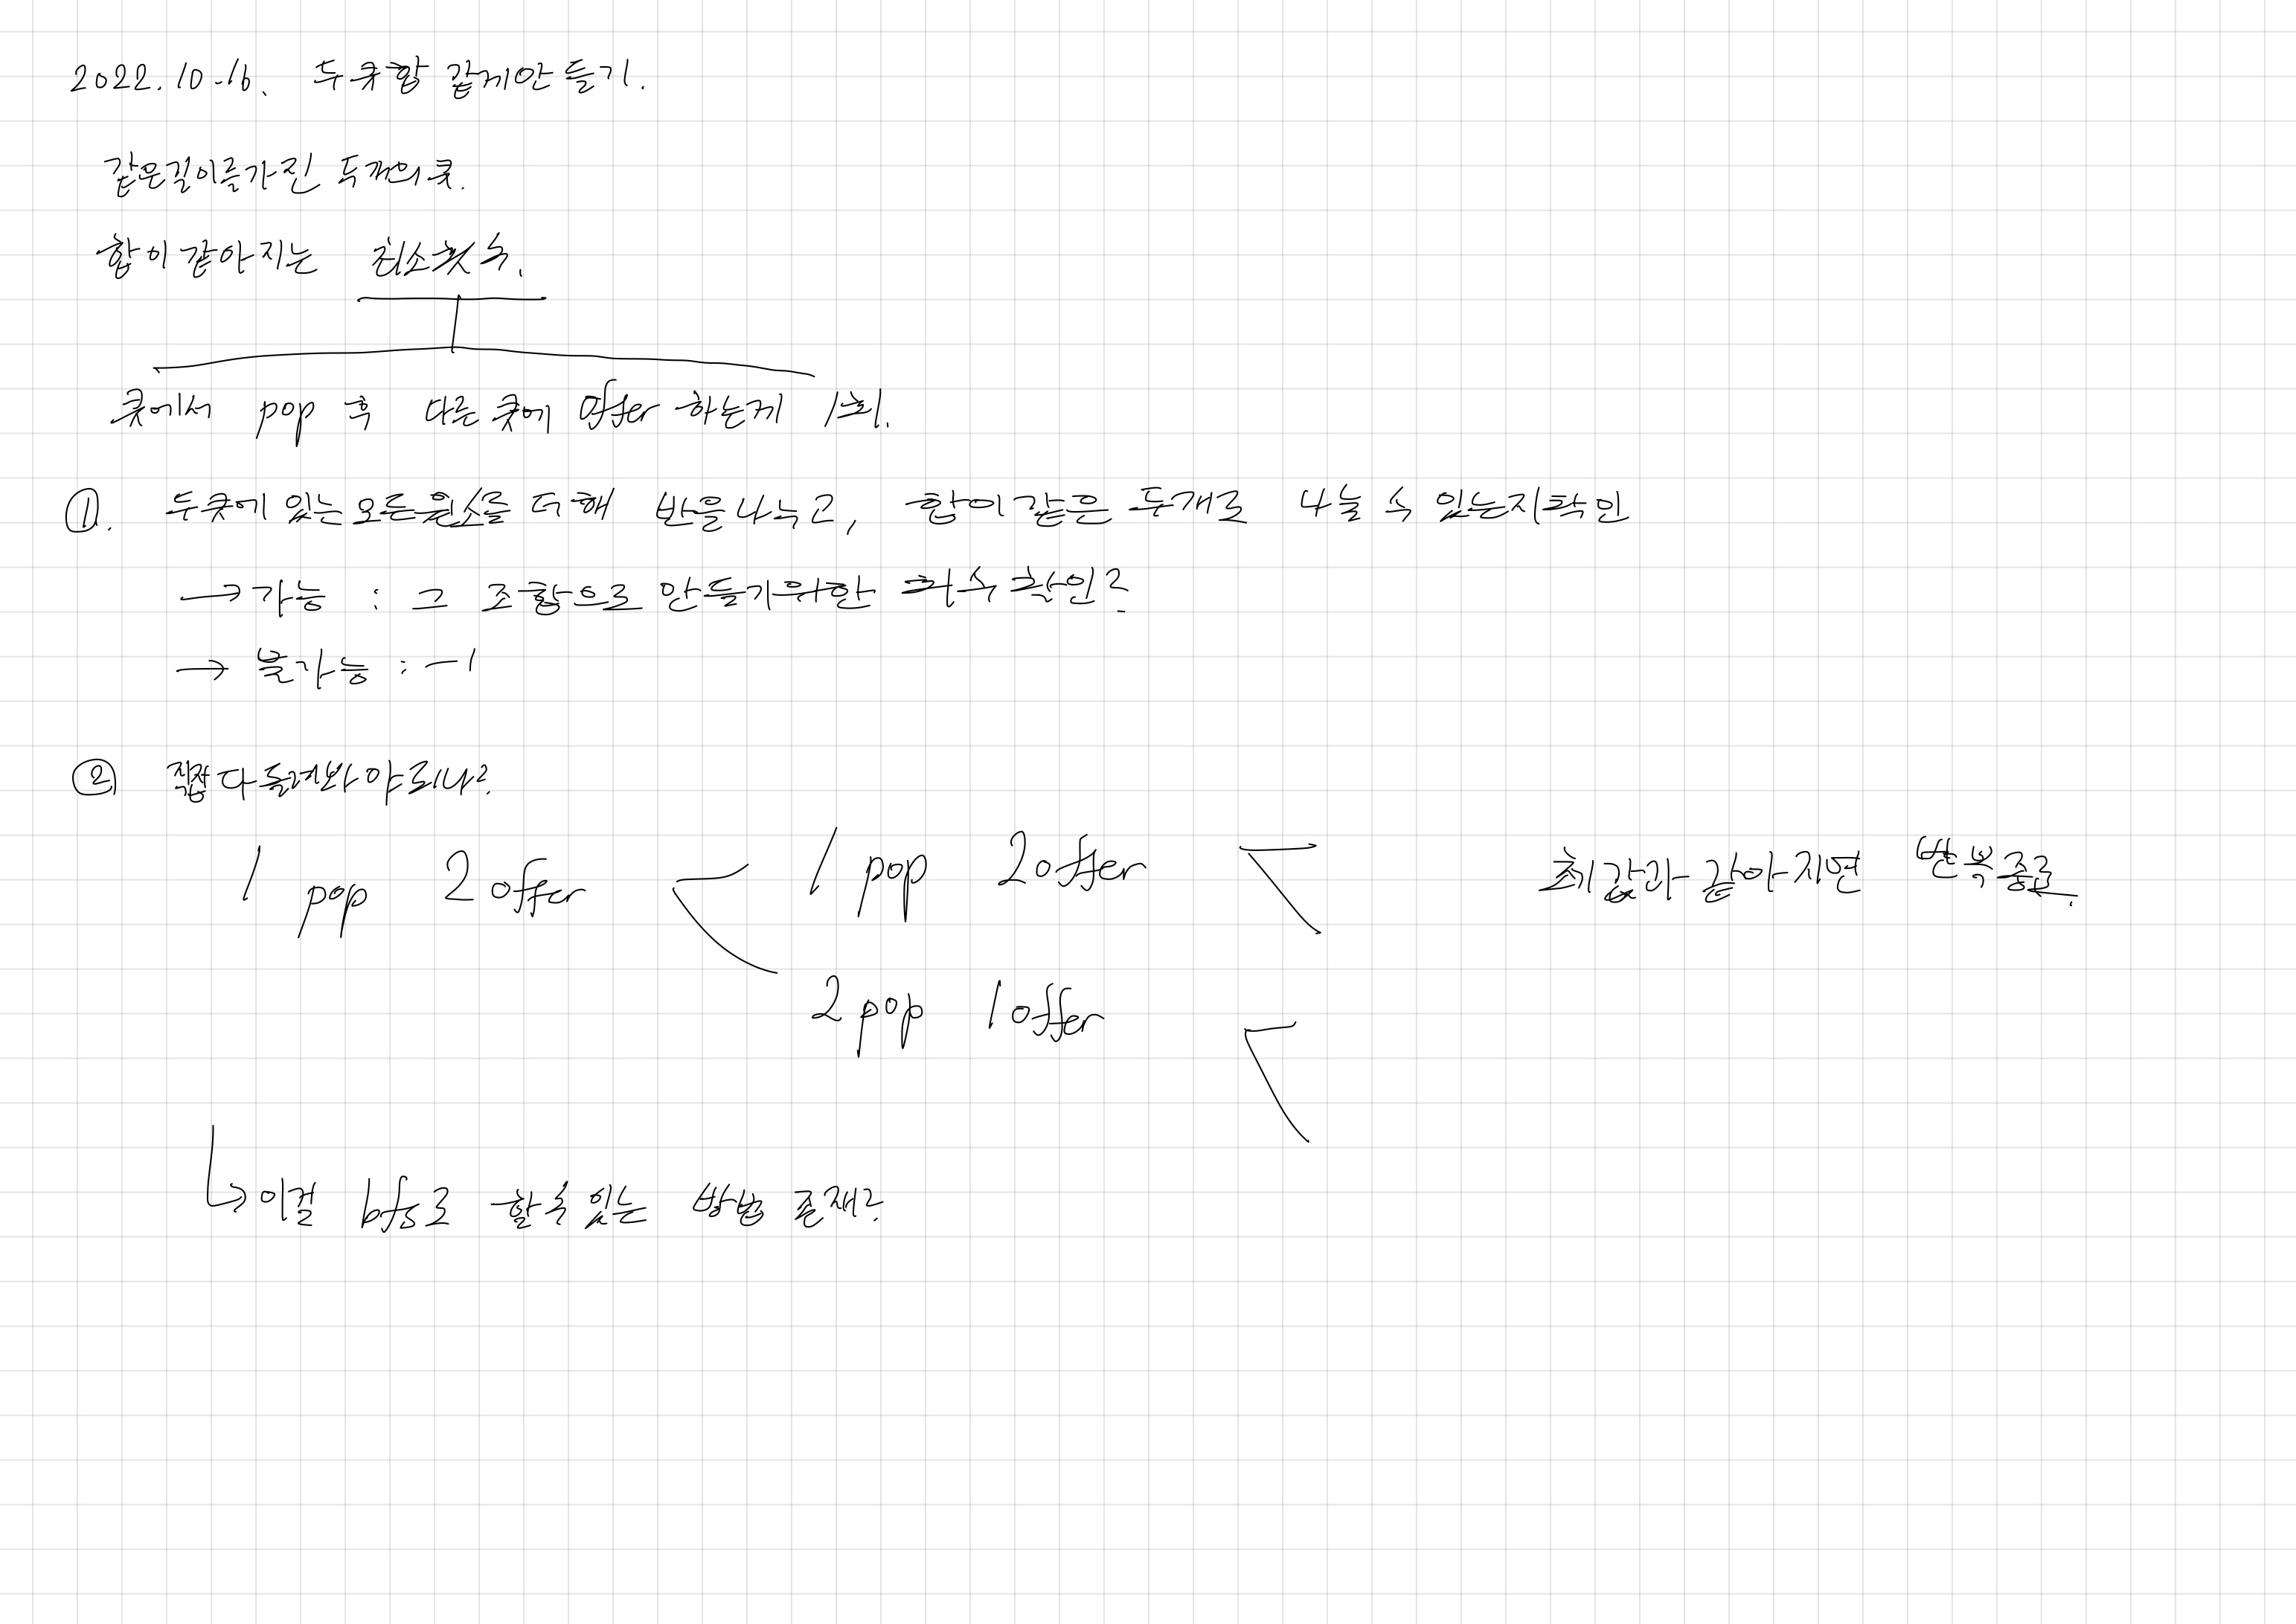 2022.10.16. 두 큐 합 같게 만들기.
같은 길이를 가진 두개의 큐.
합이 같아지는 최소횟수.
큐에서 pop 후 다른 큐에 offer 하는게 1회.
①. 두 큐에 있는 모든 원소를 더해 반을 나누고, 합이 같은 두개로 나눌 수 있는지 확인
→ 가능 : 그 조합으로 만들기위한 회수 확인?
→ 불가능 : -1
② 직접 다 돌려봐야 되나?
1 pop 2 offer 1 pop 2 offer 초기값과 같아지면 반복종료.
2 pop 1 offer
↳ 이걸 bfs로 할 수 있는 방법 존재?